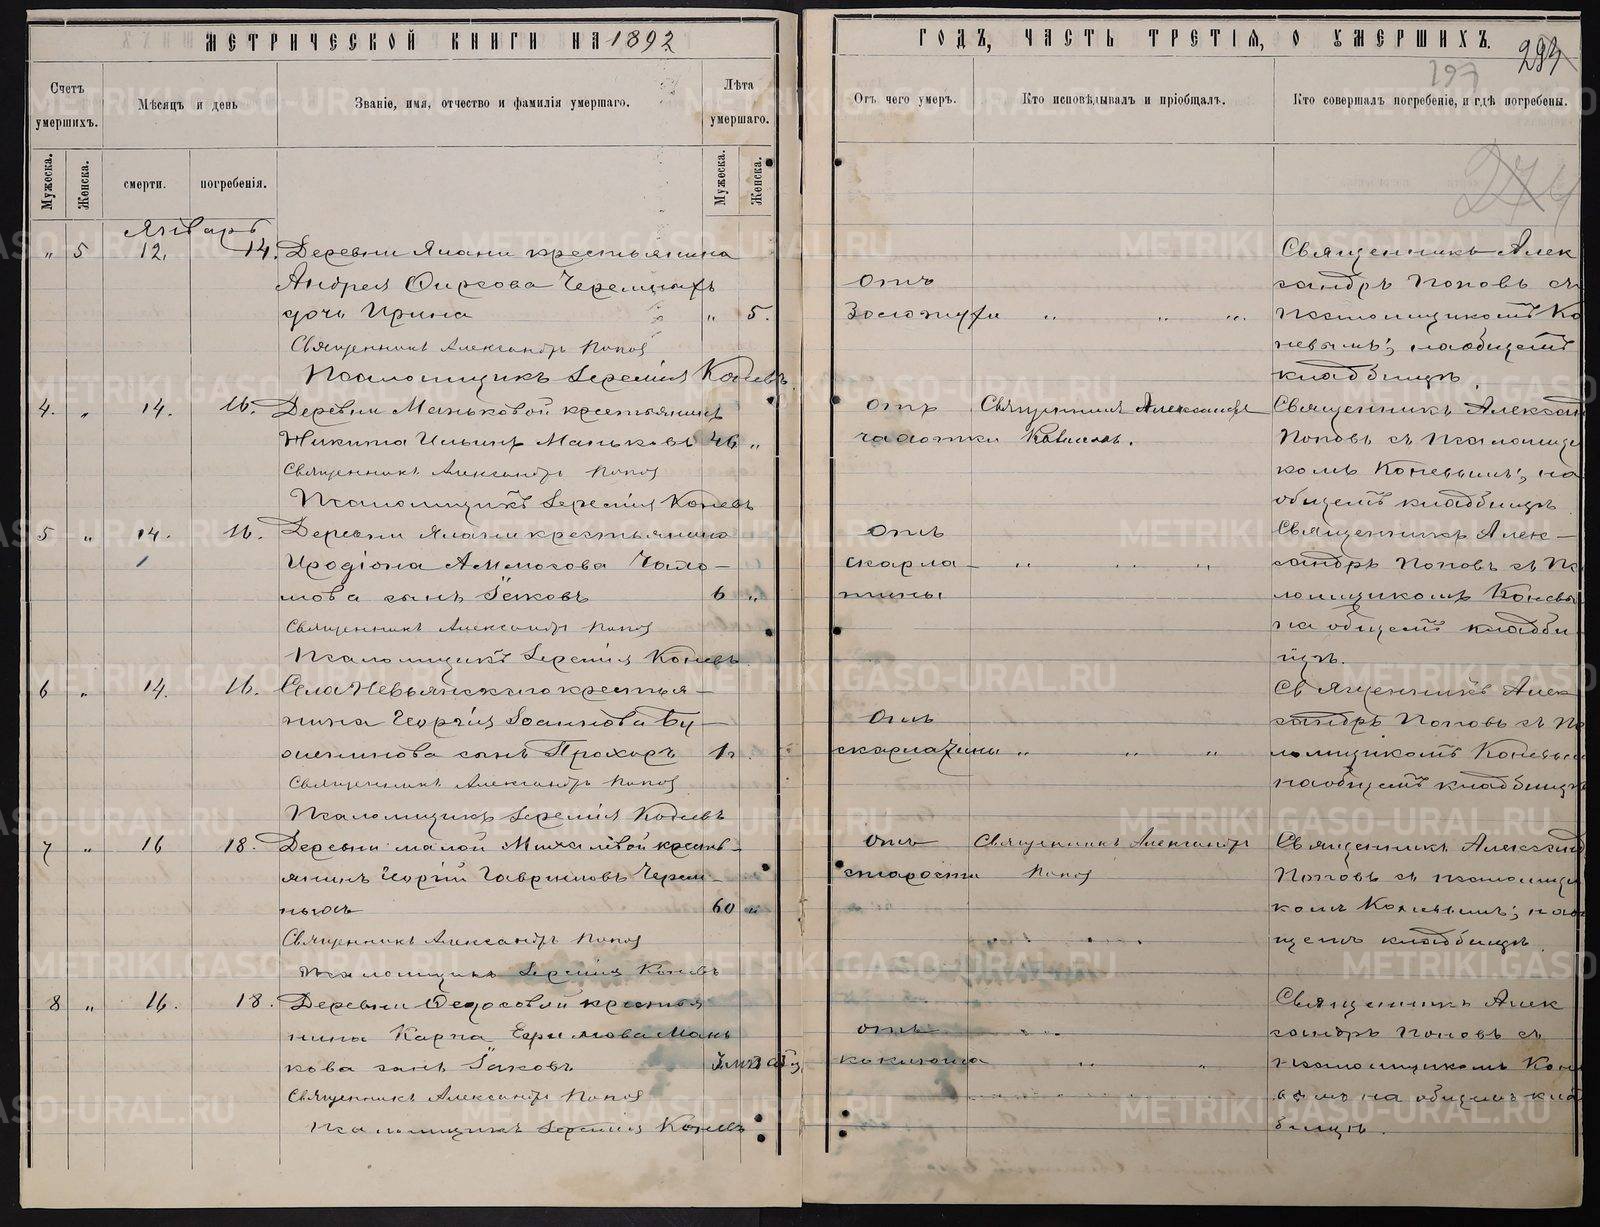 МЕТРИЧЕСКОЙ КНИГИ НА 1892
ГОДЪ, ЧАСТЬ ТРЕТІЯ, О УМЕРШИХЪ.
197
Счетъ умершихъ.
Мѣсяцъ и день
Званіе, имя, отчество и фамилія умершаго.
Лѣта умершаго.
Отъ чего умеръ.
Кто исповѣдывалъ и пріобщалъ.
Кто совершалъ погребеніе, и гдѣ погребены.
Мужеска.
Женска.
смерти.
погребенія.
Мужеска.
Женска.
274
Январь
" 5 12. 14. Деревни Ялани крестьянина
Андрея Фирсова Черемныхъ
дочь Ирина " 5.
Священникъ Александръ Поповъ
Псаломщикъ Іеремія Коневъ
отъ
Золотухи " " "
Священникъ Алек
сандръ Поповъ съ
Псаломщикомъ Ко
невымъ; на общемъ
кладбищѣ.
4. " 14. 16. Деревни Маньковой крестьянинъ
Никита Ильинъ Маньковъ 46 "
Священникъ Александръ Поповъ
Псаломщикъ Іеремія Коневъ
отъ
чахотки
Священникъ Александръ
Священникъ Александ
Поповъ съ Псаломщи
комъ Коневымъ; на
общемъ кладбищѣ
5 " 14. 16. Деревни Ялани крестьянина
Иродіона Аммосова
сынъ Іаковъ 6 "
Священникъ Александръ Поповъ
Псаломщикъ Іеремія Коневъ
отъ
скарла-
тины " " "
Священникъ Алек-
сандръ Поповъ съ Пса
ломщикомъ Коневы
на общемъ кладби
щѣ.
6 " 14. 16. Села Невьянскаго крестья-
нина Георгія Іоаннова Бу-
сынъ Прохоръ
Священникъ Александръ Поповъ
Псаломщикъ Іеремія Коневъ
отъ
скарлатины " " "
Священникъ Алек
сандръ Поповъ съ Пса
ломщикомъ Коневым
на общемъ кладбищѣ
7 " 16 18. Деревни малой крестъ-
янинъ Георгій Гавриловъ Черем-
ныхъ 60 "
Священникъ Александръ Поповъ
Псаломщикъ Іеремія Коневъ
отъ
старости
Священникъ Александръ
Поповъ
Священникъ Александ
Поповъ съ псаломщи
комъ Коневымъ; на об
щемъ кладбищѣ.
8 " 16. 18. Деревни Федосовой крестья
нина Карпа Ефимова Мань
кова сынъ Іаковъ
Священникъ Александръ Поповъ
Псаломщикъ Іеремія Коневъ
отъ
коклюша " "
Священникъ Алек
сандръ Поповъ съ
псаломщикомъ Кон
вымъ на общемъ клад
бищѣ.
METRIKI.GASO-URAL.RU